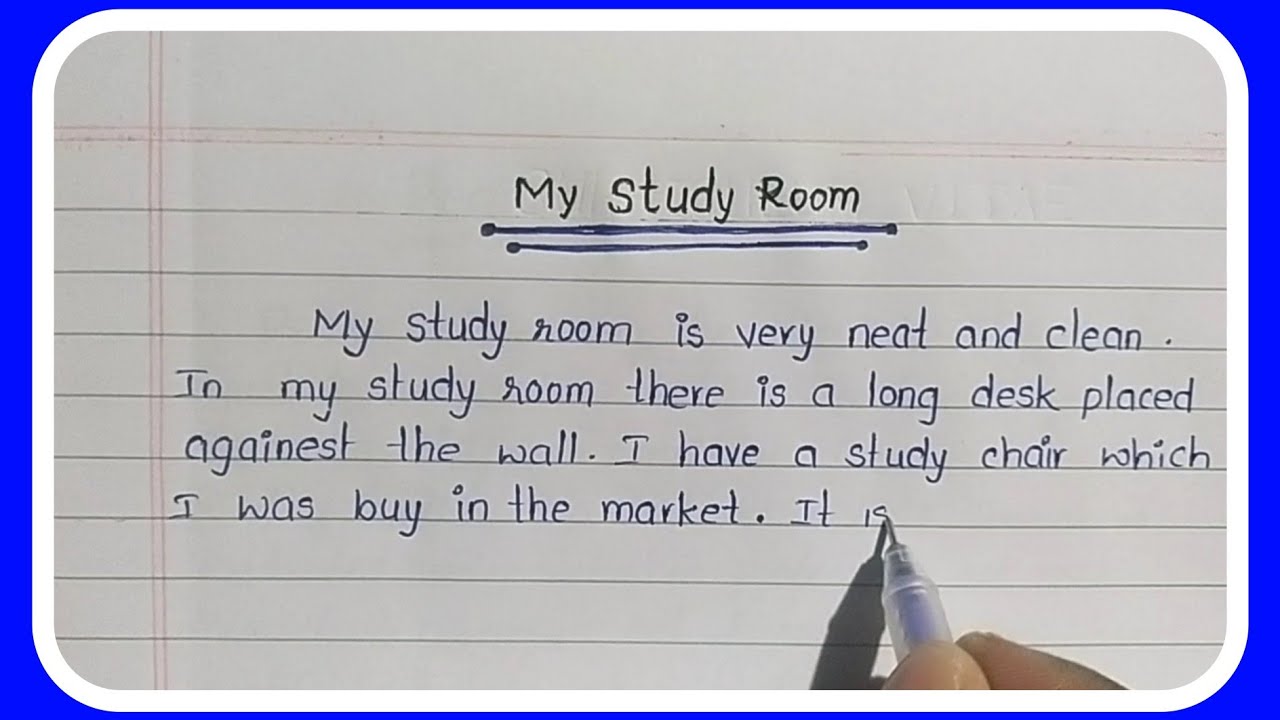 My Study Room
My study room is very neat and clean.
In my study room there is a long desk placed
againest the wall. I have a study chair which
I was buy in the market. It is